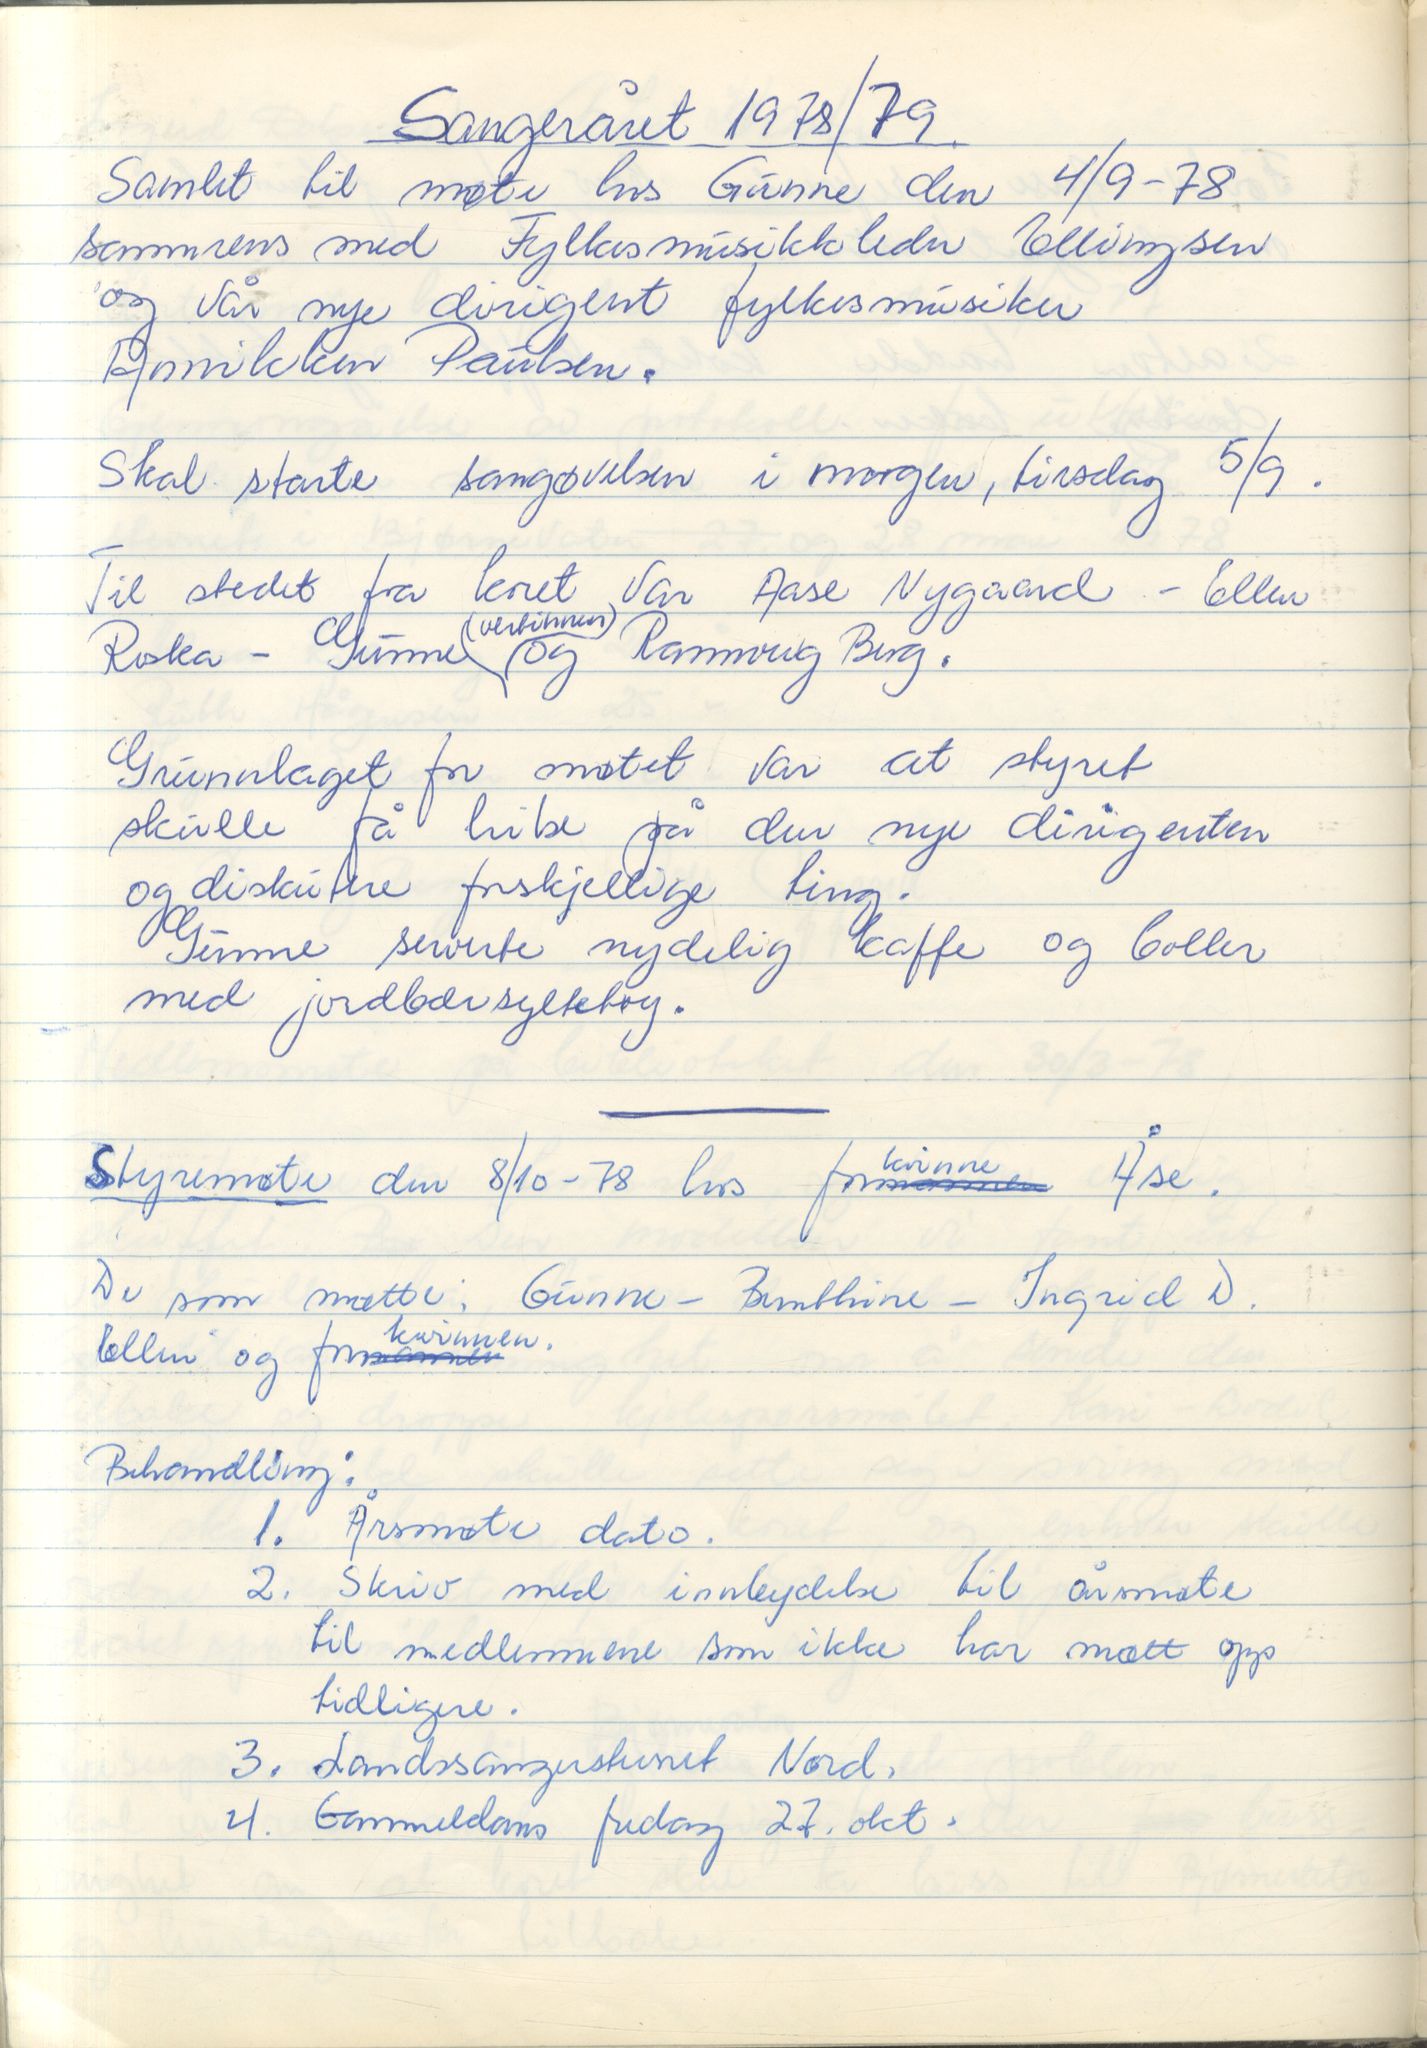 Sangeråret 1978/79.
Samlet til møte hos Gunne den 4/9-78
sammens med Fylkesmusikkleder Ellingsen
og vår nye dirigent fylkesmusiker
Paulsen.
Skal starte sangøvelsen i morgen, tirsdag 5/9.
Til stedet fra koret var Aase Nygaard - Ellen
Roska - Gunne (vertinnen) og Rannveig Berg.
Grunnlaget for møtet var at styret
skulle få hilse på den nye dirigenten
og diskutere forskjellige ting.
Gunne serverte nydelig kaffe og boller
med jordbærsyltetøy.
Styremøte den 8/10-78 hos forkvinne Åse.
De som møtte: Gunne - Bernthine - Ingrid D.
Ellen og forkvinnen.
Behandling:
1. Årsmøte dato.
2. Skriv med innbydelse til årsmøte
til medlemmene som ikke har møtt opp
tidligere.
3. Landssangerstevnet Nord.
4. Gammeldans fredag 27. okt.